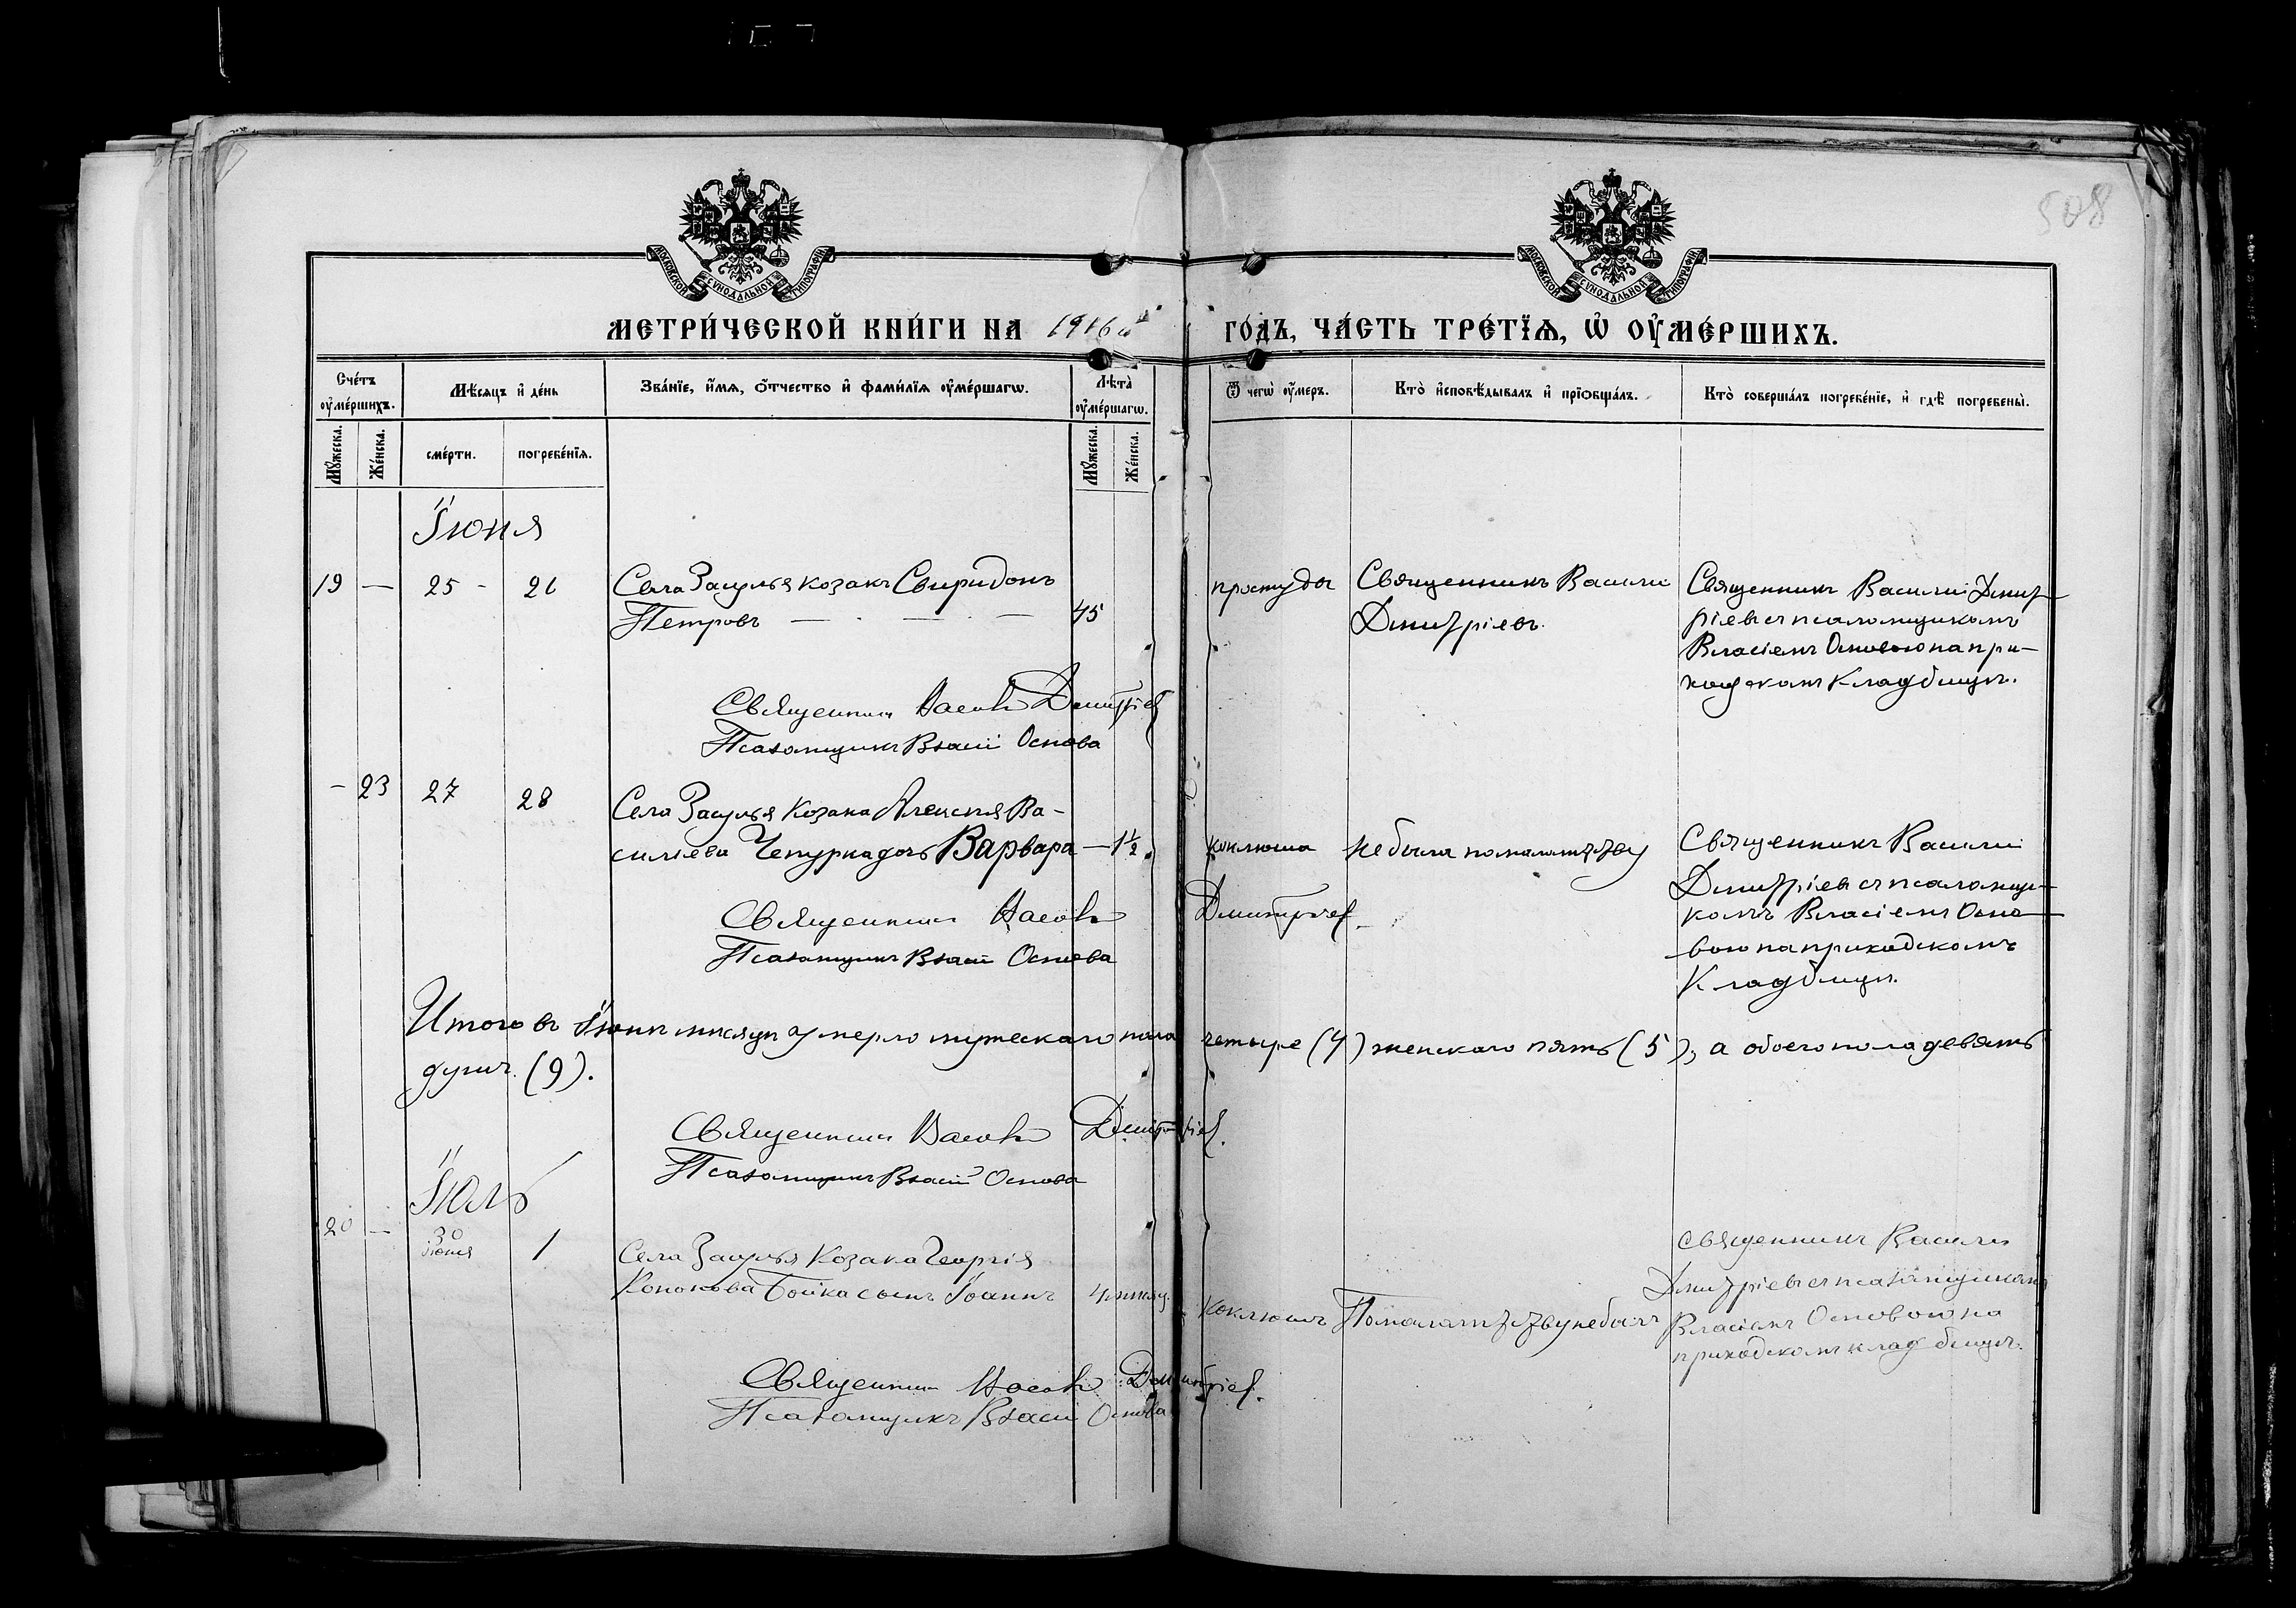 508
МОСКОВСКОЙ СУНОДАЛЬНОЙ ТИПОГРАФІИ
МОСКОВСКОЙ СУНОДАЛЬНОЙ ТИПОГРАФІИ
МЕТРИ́ЧЕСКОЙ КНИ́ГИ НА 1916й ГО́ДЪ, ЧА́СТЬ ТРЕ́ТЇѦ, Ѡ҆ ОУ҆МЕ́РШИХЪ.
Сче́тъ оу҆ме́ршихъ.
Мѣ́сяцъ и҆ де́нь
Зва́нїе, и҆́мѧ, ѻ҆́тчество и҆ фами́лїѧ оу҆ме́ршагѡ.
Лѣ́та оу҆ме́ршагѡ.
Ѿ чегѡ̀ оу҆́меръ.
Кто̀ и҆сповѣ́дывалъ и҆ прїѻбща́лъ.
Кто̀ соверша́лъ погребе́нїе, и҆ гдѣ̀ погребены̀.
Мꙋ́жеска. Же́нска.
сме́рти. погребе́нїѧ.
Мꙋ́жеска. Же́нска.
Іюня
19 — 25 - 26 Села Засулья козакъ Свиридонъ
Петровъ — — — 45
простуды
Священникъ Василій
Димитріевъ.
Священникъ Василій Димит-
ріевъ съ псаломщикомъ
Власіемъ Основою на при-
ходскомъ кладбищѣ.
Священникъ Василій Димитріев
Псаломщикъ Власій Основа
— 23 27 28 Села Засулья козака Алексія Ва-
силіева Чепурка дочь Варвара — 1½
коклюша
не была по малолѣтству
Священникъ Василій
Димитріевъ съ псаломщи-
комъ Власіемъ Осно-
вою на приходскомъ
кладбищѣ.
Священникъ Василій Димитріев
Псаломщикъ Власій Основа
Итого въ Іюнѣ мѣсяцѣ умерло мужескаго пола четыре (4) женскаго пять (5), а обоего пола девять
душъ (9).
Священникъ Василій Димитріев.
Псаломщикъ Власій Основа
Іюль
20 — 30 Іюня 1 Села Засулья козака Георгія
Кононова Бойка сынъ Іоаннъ 4 мѣсяц.
Коклюшъ
По малолѣтству не былъ
Священникъ Василій
Димитріевъ съ псаломщикомъ
Власіемъ Основою на
приходскомъ кладбищѣ.
Священникъ Василій Димитріев.
Псаломщикъ Власій Основа